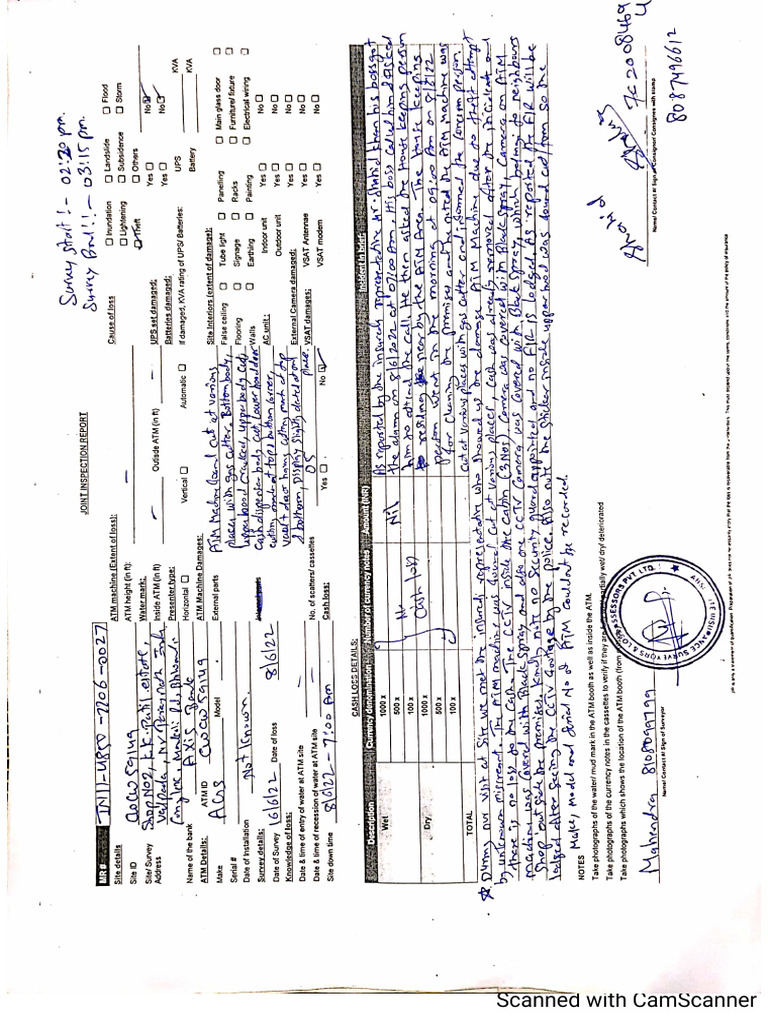 Survey start :- 02:20 pm.
Survey End :- 03:15 pm.
JOINT INSPECTION REPORT
MR #
IN11-UPSO-2206-0027
Site details
ATM machine (Extent of loss):
Cause of loss
Inundation
Landslide
Flood
Site ID
CWCW59149
ATM height (in ft):
Lightening
Subsidence
Storm
Site/ Survey Address
Shop No 2, K.K. Patil estate,
Water mark:
Theft
Others
Inside ATM (in ft)
Outside ATM (in ft)
UPS set damaged:
Yes
No
Presenter type:
Batteries damaged:
Yes
No
Name of the bank
AXIS Bank
Horizontal
Vertical
Automatic
If damaged, KVA rating of UPS/ Batteries:
UPS
KVA
Battery
KVA
ATM Details:
ATM ID
CWCW59149
ATM Machine Damages:
Site Interiors (extent of damage):
Make
AGS
Model
External parts
ATM Machine found cut at various
places with gas cutter. Bottom body,
upper hood cracked, upper body cut,
Cash dispenser body cut, Lower hood door
cutting mark at top & bottom corner,
vault door having cutting mark at top
& bottom, display slightly dented at one
place.
False ceiling
Tube light
Panelling
Main glass door
Serial #
Flooring
Signage
Racks
Furniture/ fixture
Date of installation
Not Known
Walls
Earthing
Painting
Electrical wiring
Survey details:
AC unit:
Indoor unit
Yes
No
Date of Survey
16/6/22
Date of loss
8/6/22
Outdoor unit
Yes
No
Knowledge of loss:
External Camera damaged:
Yes
No
Date & time of entry of water at ATM site
No. of scatters/ cassettes
05
VSAT damages:
VSAT Antennae
Yes
No
Date & time of recession of water at ATM site
VSAT modem
Yes
No
Site down time
8/6/22 - 7:00 Am
Cash loss:
Yes
No
CASH LOSS DETAILS:
Description
Currency denomination
Number of currency notes
Amount (INR)
Incident in brief
Wet
1000 x
500 x
100 x
Dry
1000 x
500 x
100 x
TOTAL
No
Cash loss
Nil
As reported by the insured's representative Mr. Shahid khan his boss got
the alarm on 8/6/2022 at 07:00 Am. His boss called him & asked
him to attend the call. He then asked the House keeping person
residing near by the ATM Area. The house keeping
person went in the morning at 09:00 Am on 8/6/22
for cleaning the premises and noted the ATM Machine was
cut at various places with gas cutter and informed the concern person.
* During our visit at site we met the insured's representative who showed us the damage ATM Machine due to theft attempt
by unknown miscreant. The ATM machine was found cut at various places, cash was already removed after the incident and
there is no loss to the cash. The CCTV inside the Cabin (3Nos) Camera was covered with Black spray, Camera on ATM
machine was covered with Black spray and also one CCTV Camera was covered with Black spray, which belong to neighbours
shop out side the premises. Kindly note no security guard appointed and no FIR is lodged. As reported the FIR will be
lodged after seeing the CCTV footage by the police. Also note the sticker inside upper hood was found cut/torn so the
Make, Model and Serial No of ATM couldn't be recorded
NOTES
Take photographs of the water/ mud mark in the ATM booth as well as inside the ATM.
Take photographs of the currency notes in the cassettes to verify if they are partially wet/ dry/ deteriorated
Take photographs which shows the location of the ATM booth (from
Mahendra 8108099799
Name/ Contact #/ Sign of Surveyor
Shahid
7c2008469
4
8087496612
Name/ Contact #/ Sign of Consignor/ Consignee with stamp
INSURANCE SURVEYORS & LOSS ASSESSORS PVT LTD.
Scanned with CamScanner